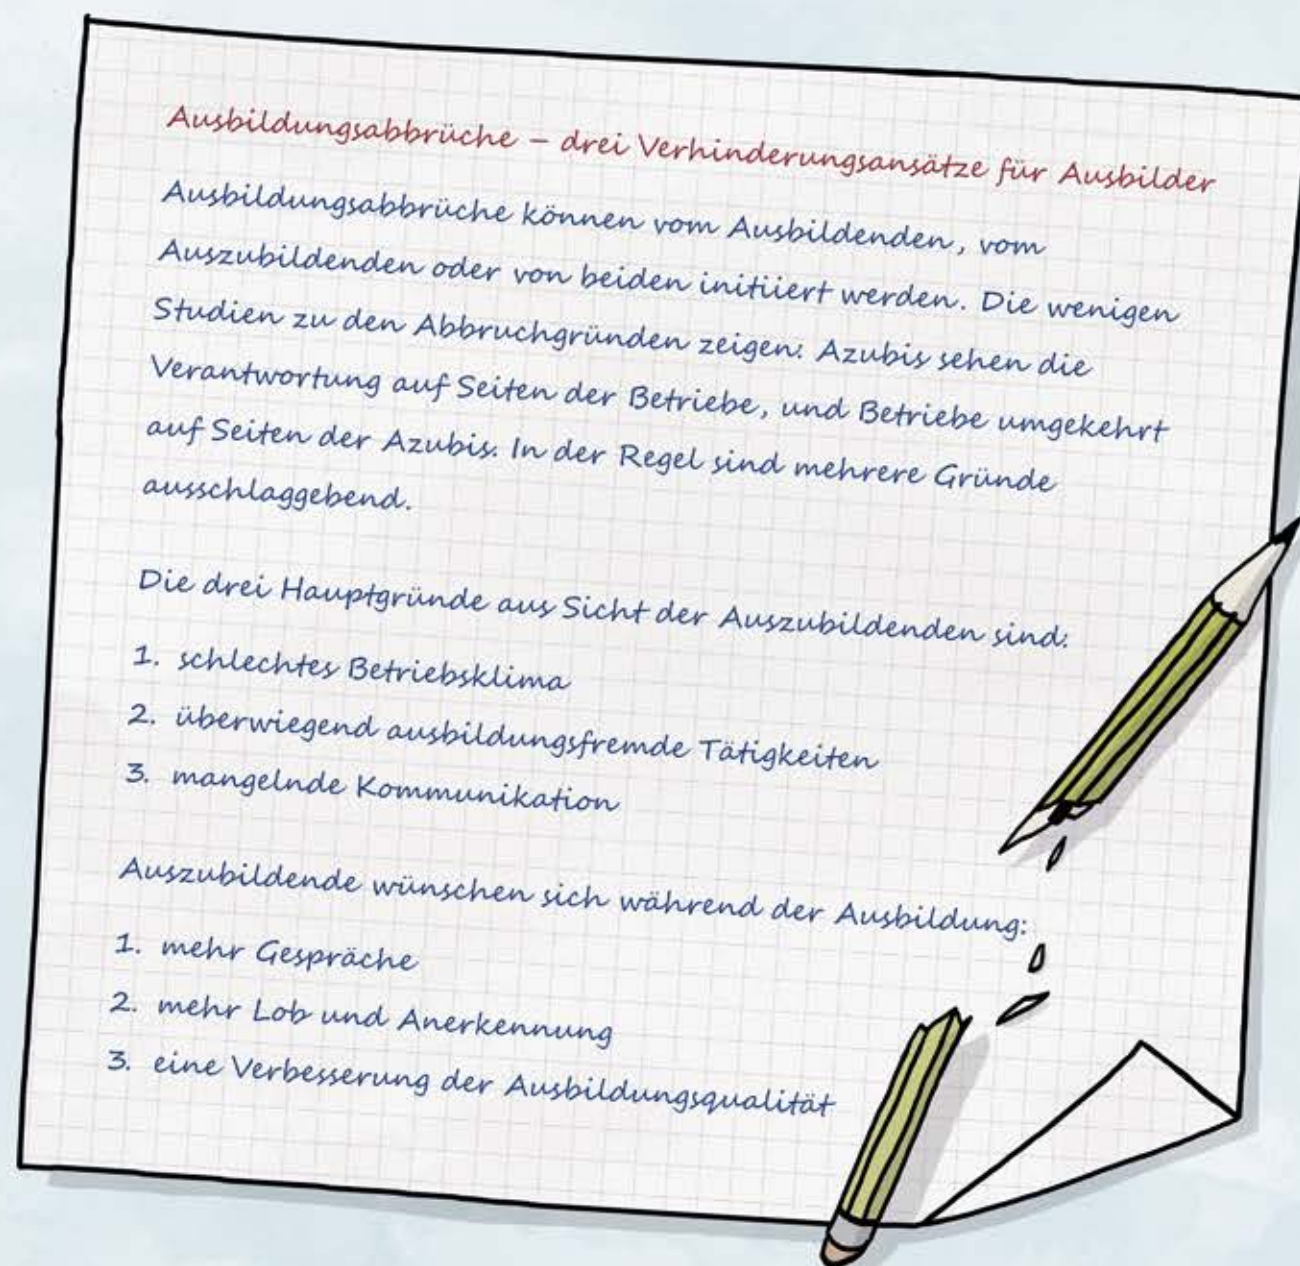 Ausbildungsabbrüche – drei Verhinderungsansätze für Ausbilder
Ausbildungsabbrüche können vom Ausbildenden, vom
Auszubildenden oder von beiden initiiert werden. Die wenigen
Studien zu den Abbruchgründen zeigen: Azubis sehen die
Verantwortung auf Seiten der Betriebe, und Betriebe umgekehrt
auf Seiten der Azubis. In der Regel sind mehrere Gründe
ausschlaggebend.
Die drei Hauptgründe aus Sicht der Auszubildenden sind:
1. schlechtes Betriebsklima
2. überwiegend ausbildungsfremde Tätigkeiten
3. mangelnde Kommunikation
Auszubildende wünschen sich während der Ausbildung:
1. mehr Gespräche
2. mehr Lob und Anerkennung
3. eine Verbesserung der Ausbildungsqualität